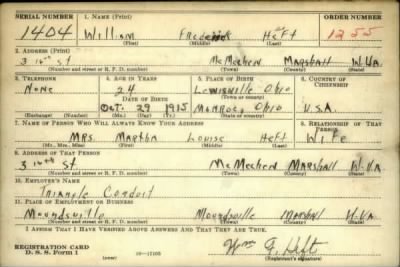 SERIAL NUMBER 1. NAME (Print) ORDER NUMBER
1404 William Frederick Heft 1255
(First) (Middle) (Last)
2. ADDRESS (Print)
3 16th St McMechen Marshall W.VA.
(Number and street or R. F. D. number) (Town) (County) (State)
3. TELEPHONE 4. AGE IN YEARS 5. PLACE OF BIRTH 6. COUNTRY OF CITIZENSHIP
None 24 Lewisville Ohio
DATE OF BIRTH (Town or county)
Oct. 29 1915 Monroe, Ohio U.S.A.
(Exchange) (Number) (Mo.) (Day) (Yr.) (State or country)
7. NAME OF PERSON WHO WILL ALWAYS KNOW YOUR ADDRESS 8. RELATIONSHIP OF THAT PERSON
Mrs. Martha Louise Heft Wife
(Mr., Mrs., Miss) (First) (Middle) (Last)
9. ADDRESS OF THAT PERSON
3 16th St. McMechen Marshall W.VA
(Number and street or R. F. D. number) (Town) (County) (State)
10. EMPLOYER'S NAME
Triangle Conduit
11. PLACE OF EMPLOYMENT OR BUSINESS
Moundsville Moundsville Marshal W.VA
(Number and street or R. F. D. number) (Town) (County) (State)
I AFFIRM THAT I HAVE VERIFIED ABOVE ANSWERS AND THAT THEY ARE TRUE.
REGISTRATION CARD
D. S. S. Form 1 16—17105 Wm F. Heft
(over) (Registrant's signature)